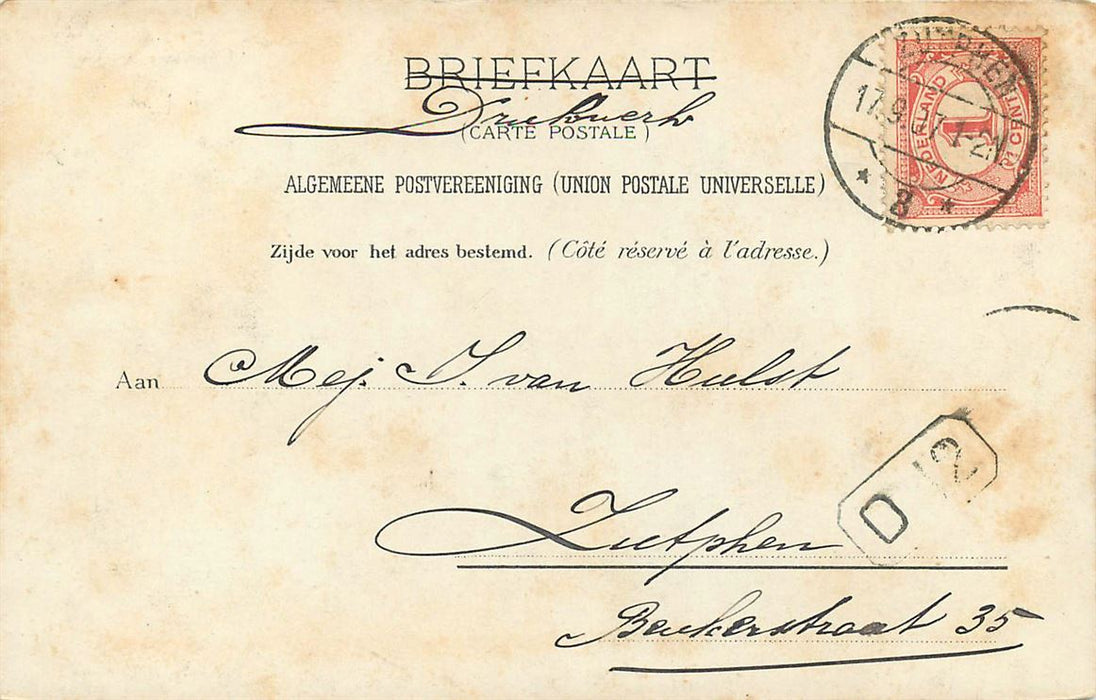 BRIEFKAART
Drukwerk
(CARTE POSTALE)
ALGEMEENE POSTVEREENIGING (UNION POSTALE UNIVERSELLE)
Zijde voor het adres bestemd. (Côté réservé à l'adresse.)
NEDERLAND 1 CENT
ZUTPHEN
17.9 7 1-2N
* 8 *
Aan Mej. J. van Hulst
D 12
Zutphen
Beukerstraat 35